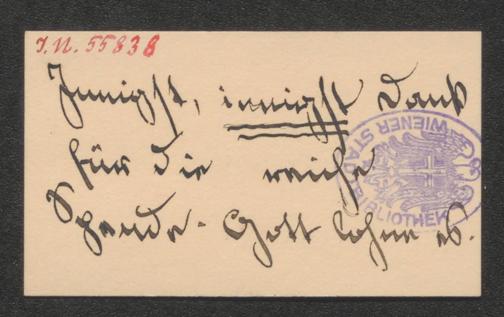 I.N. 55838
Innigst, innigst Dank
für die reiche
Spende. Gott lohne es.
WIENER STADTBIBLIOTHEK